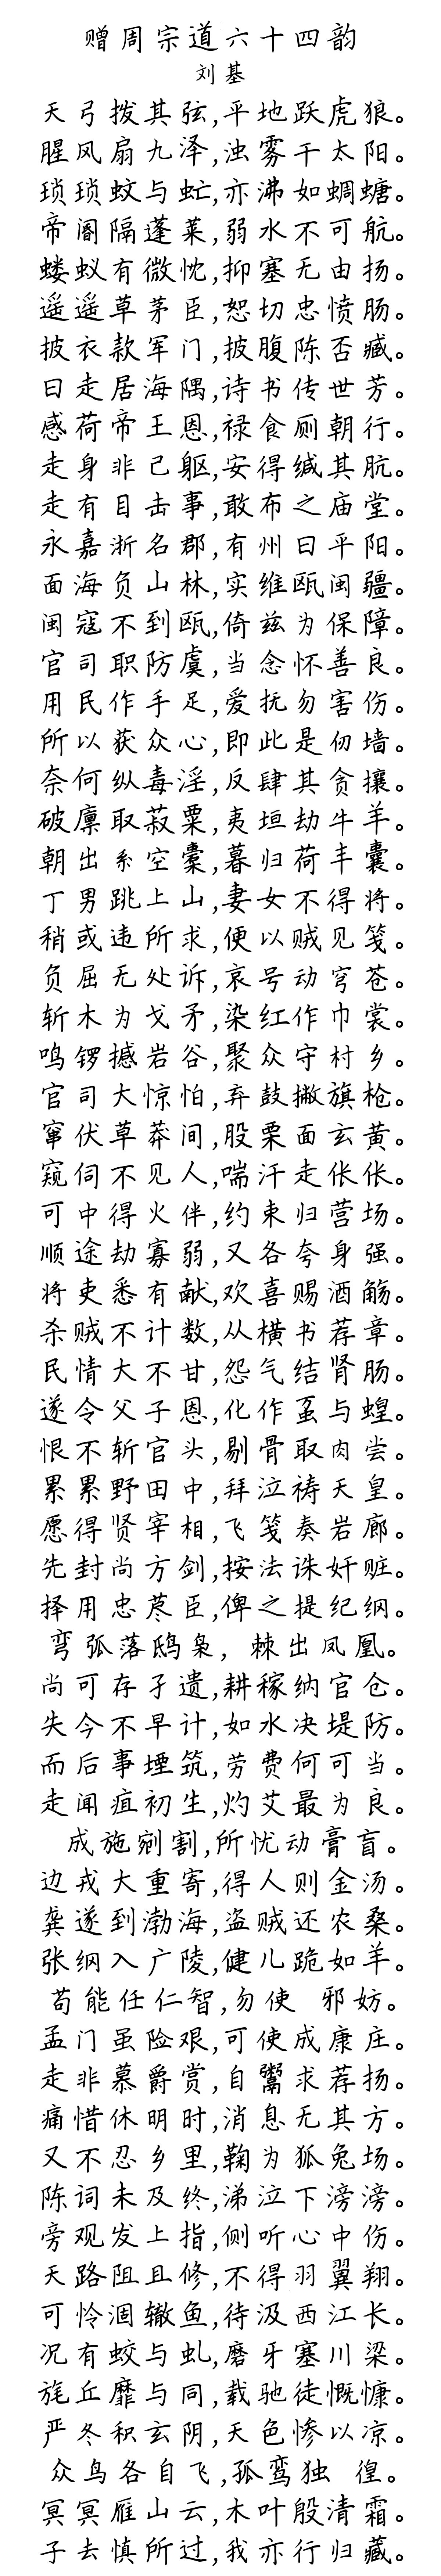 赠周宗道六十四韵
刘基
天弓拨其弦,平地跃虎狼。
腥风扇九泽,浊雾干太阳。
琐琐蚊与虻,亦沸如蜩螗。
帝阍隔蓬莱,弱水不可航。
蝼蚁有微忱,抑塞无由扬。
遥遥草茅臣,恕切忠愤肠。
披衣款军门,披腹陈否臧。
曰走居海隅,诗书传世芳。
感荷帝王恩,禄食厕朝行。
走身非己躯,安得缄其肮。
走有目击事,敢布之庙堂。
永嘉浙名郡,有州曰平阳。
面海负山林,实维瓯闽疆。
闽寇不到瓯,倚兹为保障。
官司职防虞,当念怀善良。
用民作手足,爱抚勿害伤。
所以获众心,即此是仞墙。
奈何纵毒淫,反肆其贪攘。
破廪取菽粟,夷垣劫牛羊。
朝出系空橐,暮归荷丰囊。
丁男跳上山,妻女不得将。
稍或违所求,便以贼见笺。
负屈无处诉,哀号动穹苍。
斩木为戈矛,染红作巾裳。
鸣锣撼岩谷,聚众守村乡。
官司大惊怕,弃鼓撇旗枪。
窜伏草莽间,股栗面玄黄。
窥伺不见人,喘汗走伥伥。
可中得火伴,约束归营场。
顺途劫寡弱,又各夸身强。
将吏悉有献,欢喜赐酒觞。
杀贼不计数,从横书荐章。
民情大不甘,怨气结肾肠。
遂令父子恩,化作虿与蝗。
恨不斩官头,剔骨取肉尝。
累累野田中,拜泣祷天皇。
愿得贤宰相,飞笺奏岩廊。
先封尚方剑,按法诛奸赃。
择用忠荩臣,俾之提纪纲。
弯弧落鸱枭, 棘出凤凰。
尚可存孑遗,耕稼纳官仓。
失今不早计,如水决堤防。
而后事堙筑,劳费何可当。
走闻疽初生,灼艾最为良。
成施剜割,所忧动膏肓。
边戎大重寄,得人则金汤。
龚遂到渤海,盗贼还农桑。
张纲入广陵,健儿跪如羊。
苟能任仁智,勿使 邪妨。
孟门虽险艰,可使成康庄。
走非慕爵赏,自鬻求荐扬。
痛惜休明时,消息无其方。
又不忍乡里,鞠为狐兔场。
陈词未及终,涕泣下滂滂。
旁观发上指,侧听心中伤。
天路阻且修,不得羽翼翔。
可怜涸辙鱼,待汲西江长。
况有蛟与虬,磨牙塞川梁。
旄丘靡与同,载驰徒慨慷。
严冬积玄阴,天色惨以凉。
众鸟各自飞,孤鸾独 徨。
冥冥雁山云,木叶殷清霜。
子去慎所过,我亦行归藏。